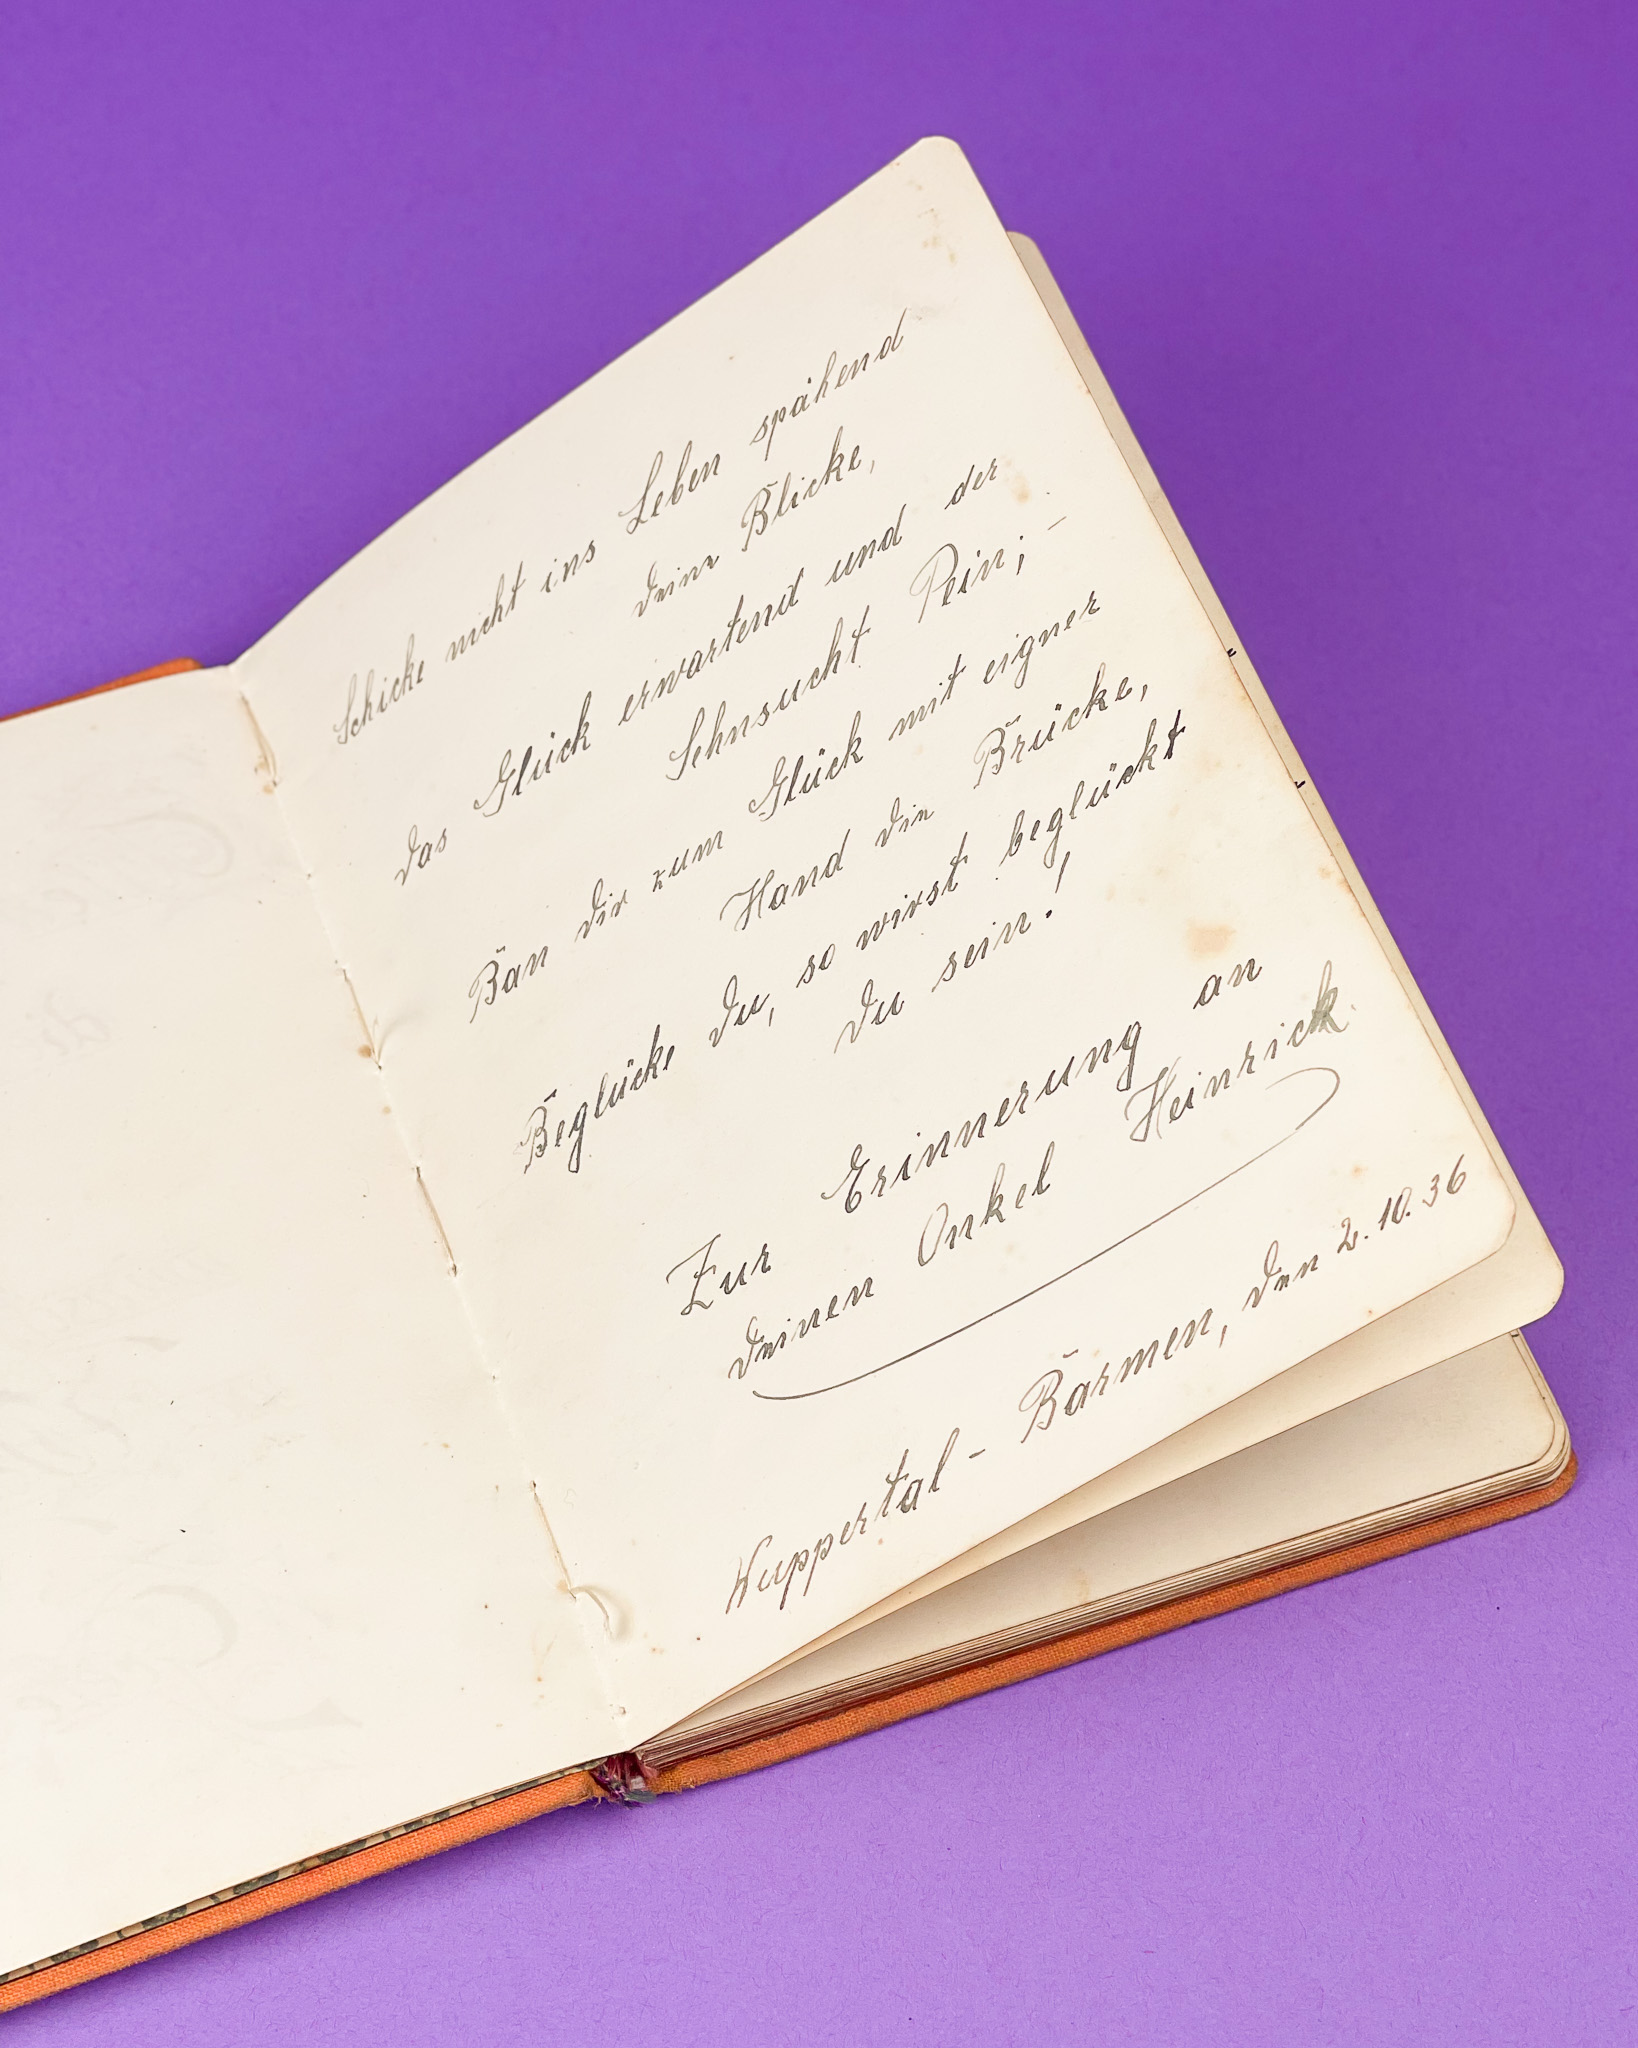 Schicke nicht ins Leben spähend
deine Blicke,
das Glück erwartend und der
Sehnsucht Pein; –
Bau dir zum Glück mit eigner
Hand die Brücke,
Beglücke du, so wirst beglückt
du sein!
Zur Erinnerung an
deinen Onkel Heinrich.
Wuppertal - Barmen, den 2.10.36